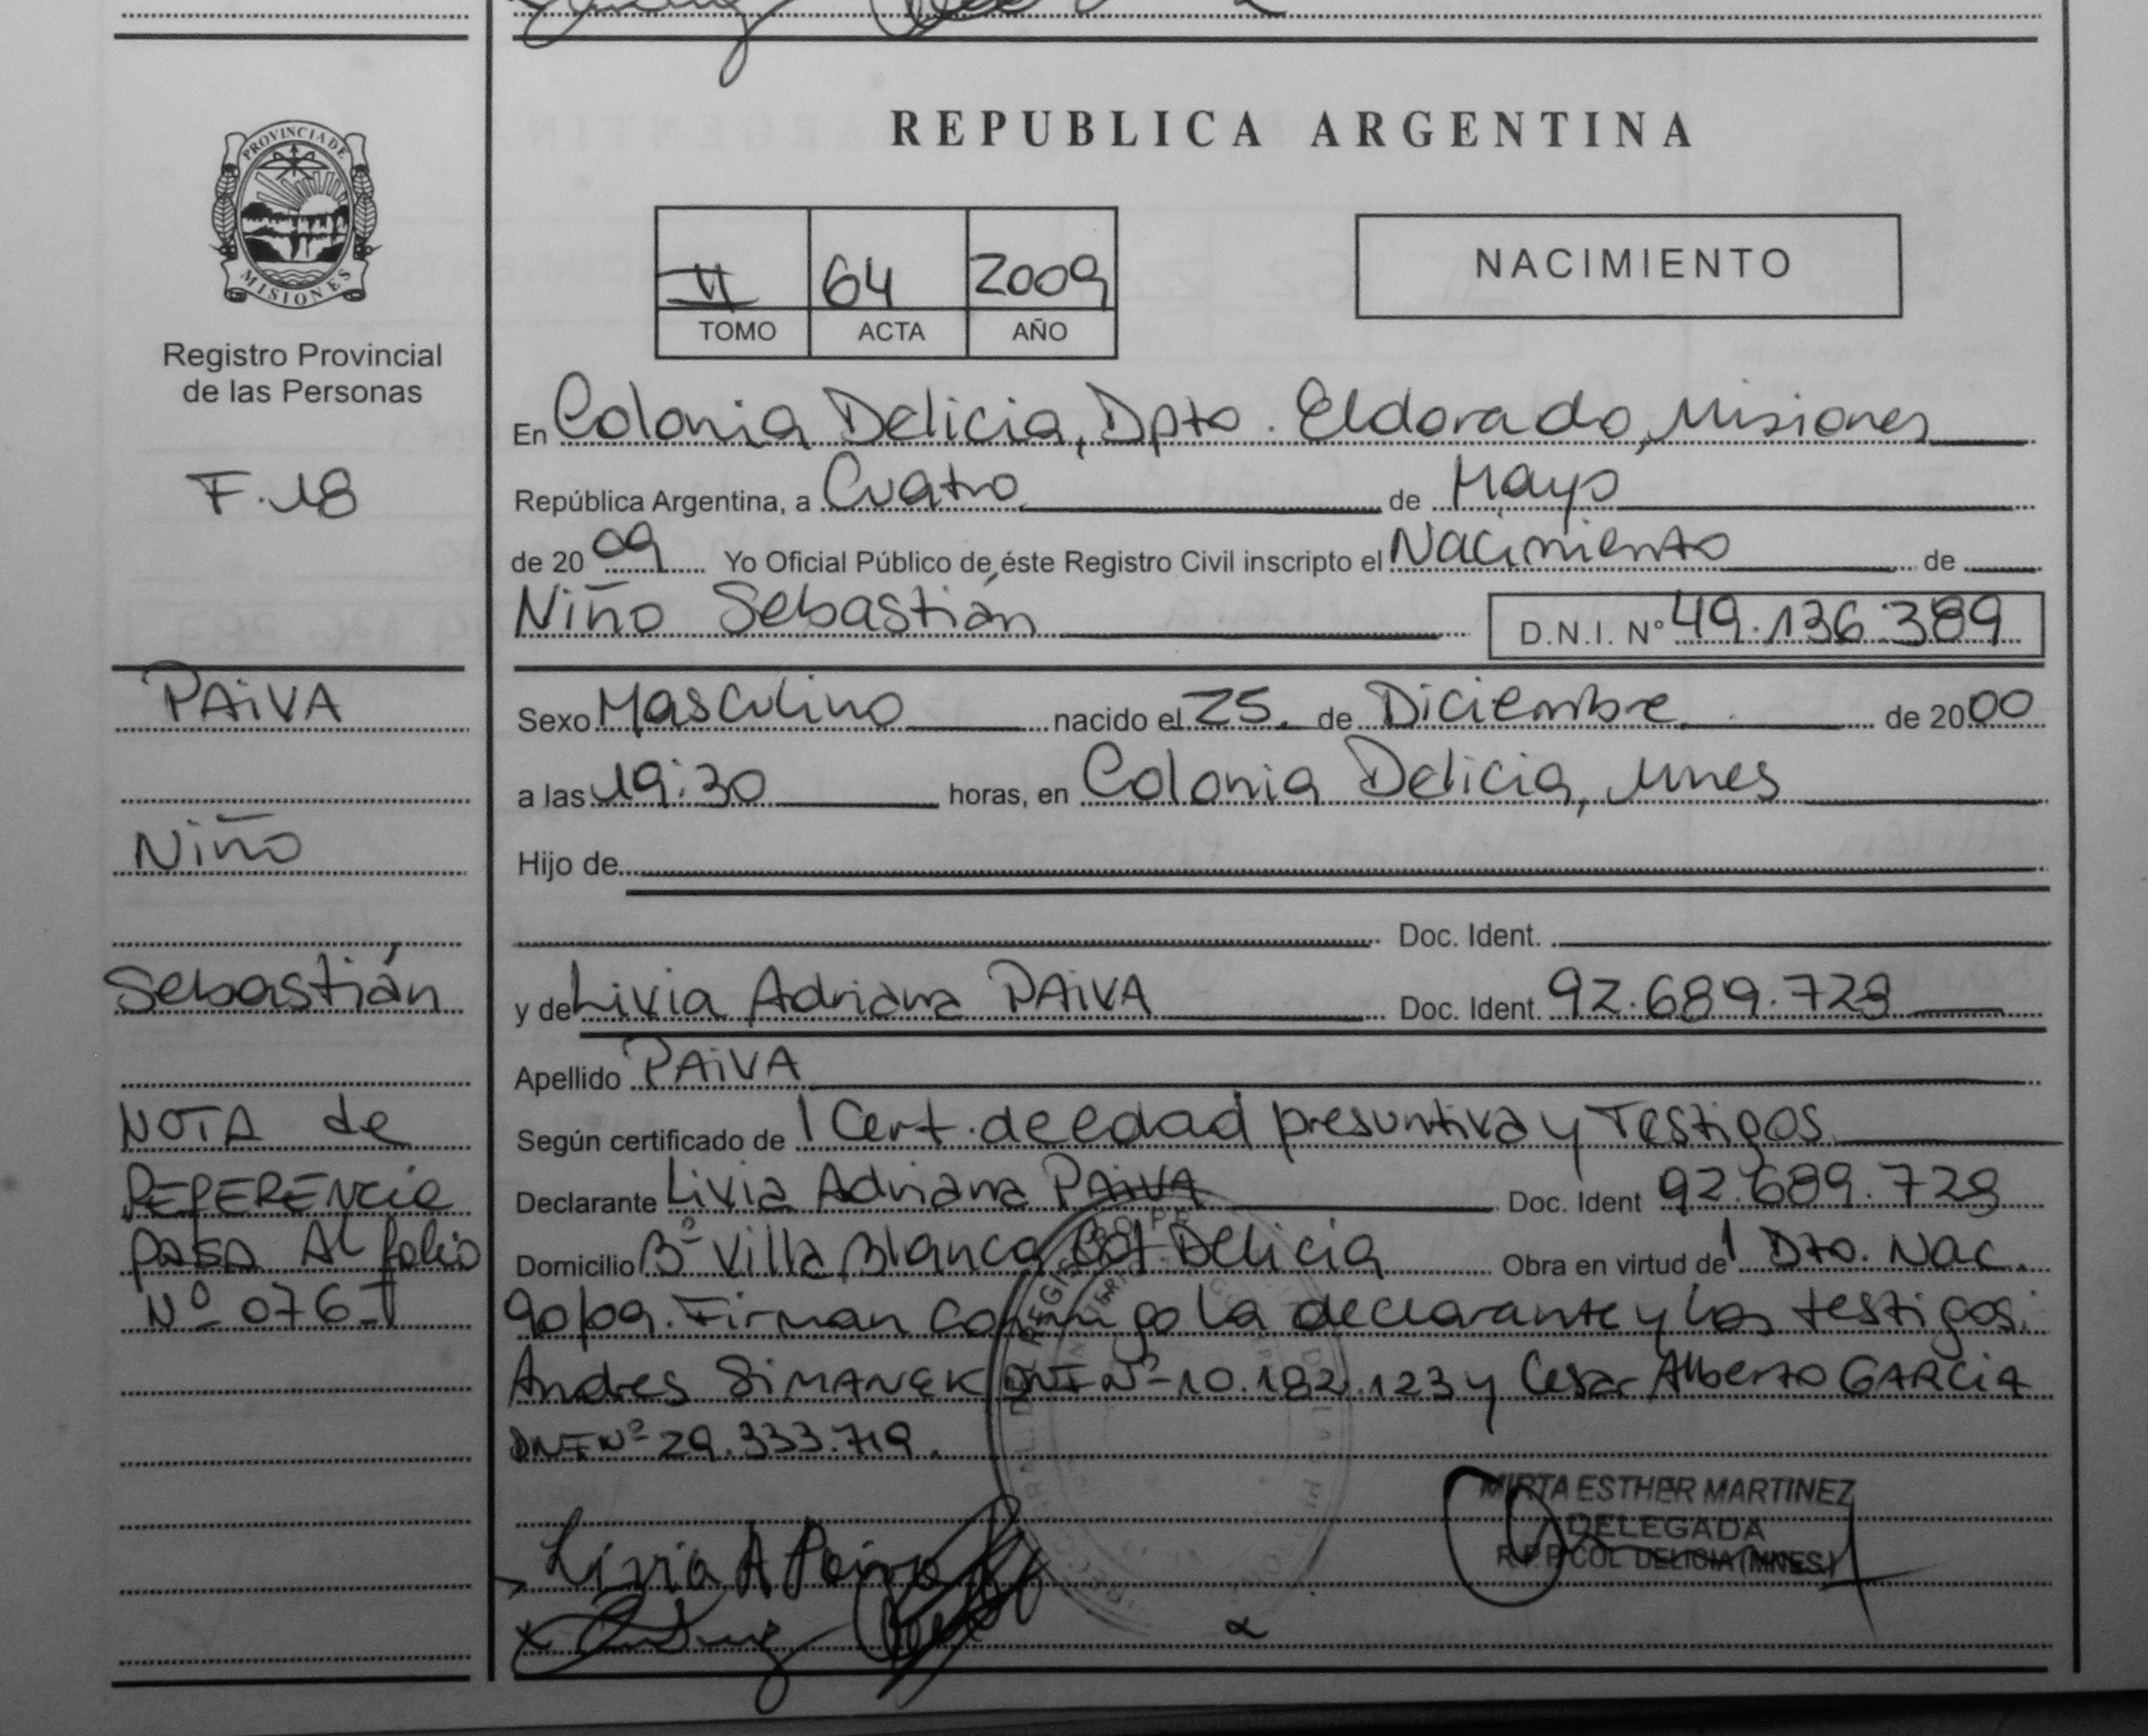 REPUBLICA ARGENTINA
PROVINCIA DE
MISIONES
Registro Provincial
de las Personas
F.18
II 64 2009
TOMO ACTA AÑO
NACIMIENTO
En Colonia Delicia, Dpto. Eldorado, Misiones
República Argentina, a Cuatro de Mayo
de 2009 Yo Oficial Público de éste Registro Civil inscripto el Nacimiento de
Niño Sebastián D.N.I. Nº 49.136.389
Sexo Masculino nacido el 25. de Diciembre de 2000
a las 19:30 horas, en Colonia Delicia, Mnes
Hijo de
Doc. Ident.
y de Livia Adriana PAiVA Doc. Ident. 92.689.728
Apellido PAiVA
Según certificado de 1 Cert. de edad presuntiva y Testigos
Declarante Livia Adriana PAiVA Doc. Ident 92.689.728
Domicilio Bº Villa Blanca Col Delicia Obra en virtud de 1 Dto. Nac.
90/09. Firman conmigo la declarante y los testigos:
Andres SiMANEK DNI Nº 10.182.123 y Cesar Alberto GARCiA
DNI Nº 29.333.719.
PAiVA
Niño
Sebastián
NOTA de
REFERENCia
pasa Al folio
Nº 076-I
Livia A Paiva
MIRTA ESTHER MARTINEZ
DELEGADA
R.P.P. COL DELICIA (MNES.)